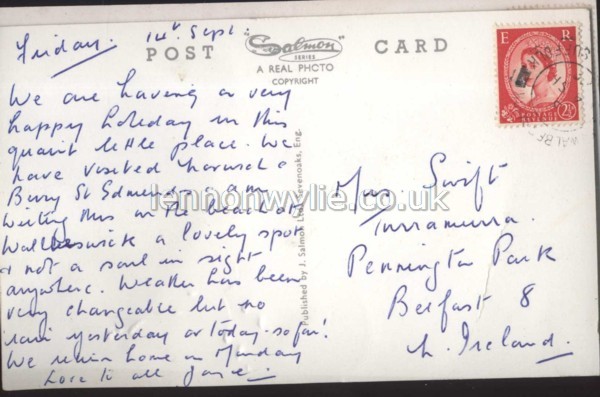 Friday. 14th Sept.
POST "Salmon" SERIES CARD
A REAL PHOTO
COPYRIGHT
We are having a very
happy holiday in this
quaint little place. We
have visited &
Bury St Edmunds & am
writing this on the beach at
Walberswick a lovely spot
& not a soul in sight
anywhere. Weather has been
very changeable but no
rain yesterday or today - so far!
We return home on Monday
Love to all
Published by J. Salmon Ltd., Sevenoaks, Eng.
lennonwylie.co.uk
E R
POSTAGE REVENUE
2½D
Mrs. Swift
Inramurra.
Pennington Park
Belfast 8
N. Ireland.